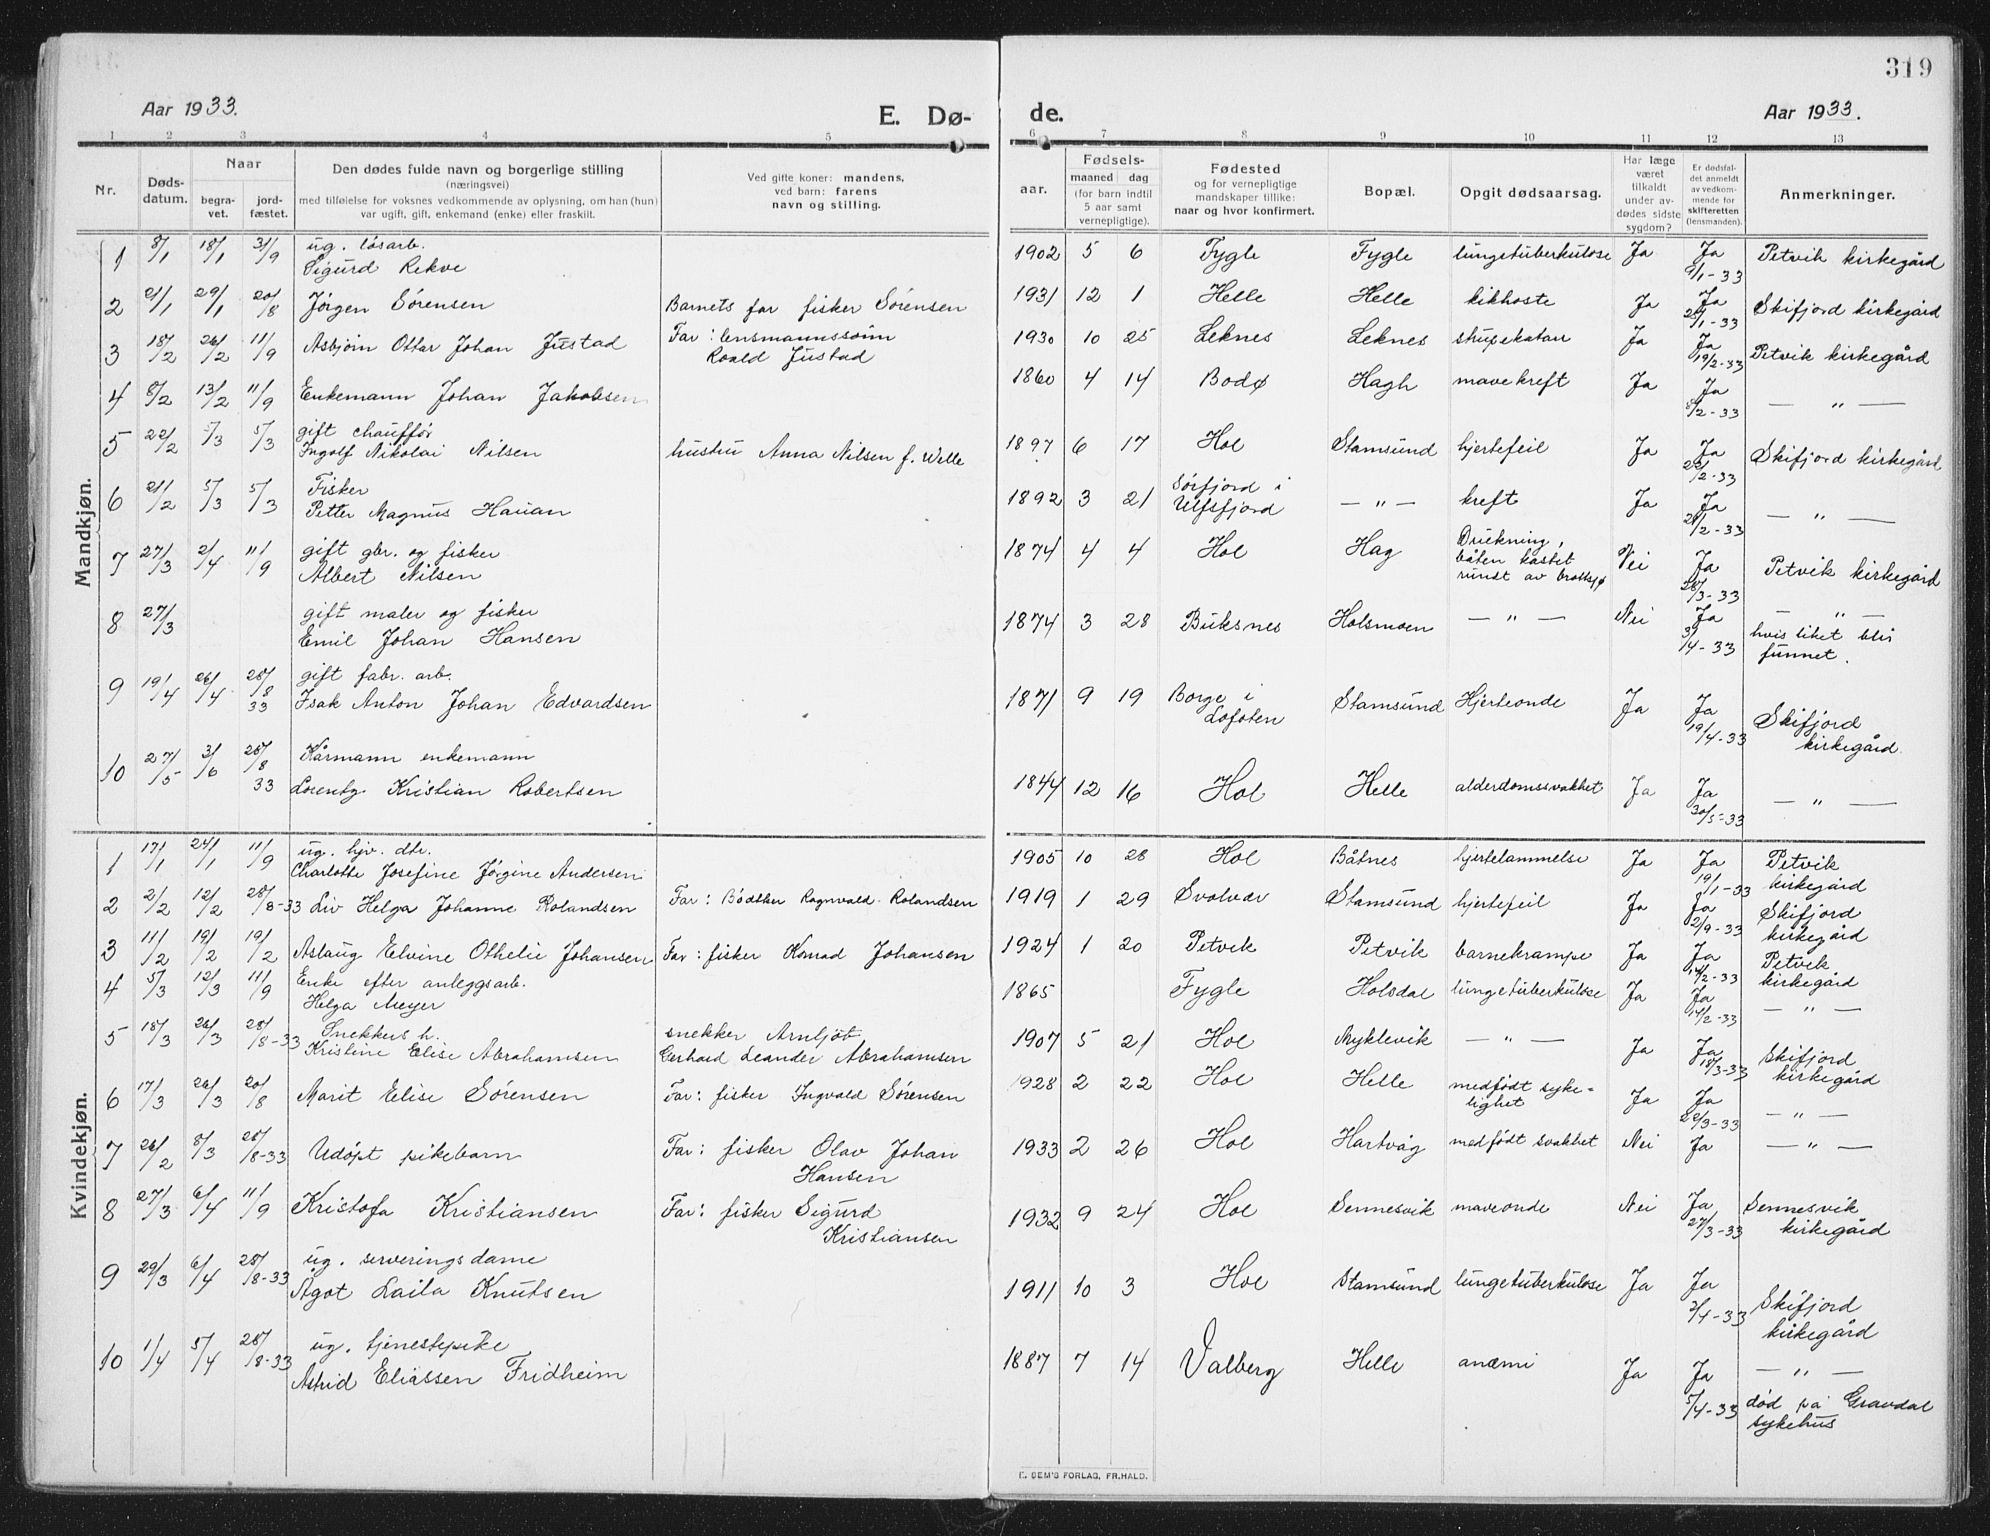 319
Aar 1933.
E. Dø-
de.
Aar 1933.
1 2 3 4 5
6 7 8 9 10 11 12 13
Nr.
Døds-
datum.
Naar
begra-
vet.
jord-
fæstet.
Den dødes fulde navn og borgerlige stilling
(næringsvei)
med tilføielse for voksnes vedkommende av oplysning, om han (hun)
var ugift, gift, enkemand (enke) eller fraskilt.
Ved gifte koner: mandens,
ved barn: farens
navn og stilling.
Fødsels-
aar. maaned dag
(for barn indtil
5 aar samt
vernepligtige).
Fødested
og for vernepligtige
mandskaper tillike:
naar og hvor konfirmert.
Bopæl.
Opgit dødsaarsag.
Har læge
været
tilkaldt
under av-
dødes sidste
sygdom?
Er dødsfal-
det anmeldt
av vedkom-
mende for
skifteretten
(lensmanden).
Anmerkninger.
Mandkjøn.
1 8/1 18/1 31/9 ug. løsarb.
Sigurd Rekve
1902 5 6 Fygle Fygle lungetuberkulose Ja Ja 9/1-33 Petvik kirkegård
2 21/1 29/1 20/8 Jørgen Sørensen Barnets far fisker Sørensen
1931 12 1 Helle Helle kikhoste Ja Ja Skifjord kirkegård
3 18/2 26/2 11/9 Asbjørn Ottar Johan Justad Far: lensmannssønn
Roald Justad
1930 10 25 Leknes Leknes strupekatarr Ja Ja 19/2-33 Petvik kirkegård
4 8/2 13/2 11/9 Enkemann Johan Jakobsen
1860 4 14 Bodø Hagh mavekreft Ja Ja 8/2-33 — " —
5 22/2 5/3 5/3 gift chauffør
Ingolf Nikolai Nilsen hustru Anna Nilsen f. Welle
1897 6 17 Hol Stamsund hjertefeil Ja Ja 23/2-33 Skifjord kirkegård
6 21/2 5/3 5/3 Fisker
Petter Magnus Hauan
1892 3 21 Sørfjord i
Ulfsfjord — " — kreft Ja Ja — " —
7 27/3 2/4 11/9 gift gbr. og fisker
Albert Nilsen
1874 4 4 Hol Hag Drukning,
båten kastet
rundt av brottsjø Nei Ja 28/3-33 Petvik kirkegård
8 27/3 gift maler og fisker
Emil Johan Hansen
1874 3 28 Buksnes Holsmoen — " — Nei Ja 3/4-33 — " —
hvis liket blir
funnet.
9 19/4 26/4 28/8 33 gift fabr. arb.
Isak Anton Johan Edvardsen
1871 9 19 Borge i
Lofoten Stamsund Hjerteonde Ja Ja 19/4-33 Skifjord
kirkegård.
10 27/5 3/6 28/8 33 Kårmann enkemann
Lorentz Kristian Robertsen
1844 12 16 Hol Helle alderdomssvakhet Ja Ja 30/5-33 — " —
Kvindekjøn.
1 17/1 24/1 11/9 ug. hjv. dtr.
Charlotte Josefine Jørgine Andersen
1905 10 28 Hol Båtnes hjertelammelse Ja Ja 19/1-33 Petvik
kirkegård
2 2/2 12/2 28/8-33 Liv Helga Johanne Rolandsen Far: Bødtker Ragnvald Rolandsen
1919 1 29 Svolvær Stamsund hjertefeil Ja Ja 2/9-33 Skifjord
kirkegård
3 11/2 19/2 19/2 Aslaug Elvine Othelie Johansen Far: fisker Konrad Johansen
1924 1 20 Petvik Petvik barnekrampe Ja Ja 14/2-33 Petvik
kirkegård
4 5/3 12/3 11/9 Enke efter anleggsarb.
Helga Meyer
1865 Fygle Holsdal lungetuberkulose Ja Ja 14/2-33 — " —
5 18/3 26/3 28/8-33 Snekkers h.
Kristine Elise Abrahamsen snekker Arnljot
Gerhard Leander Abrahamsen
1907 5 21 Hol Myklevik — " — Ja Ja 18/3-33 Skifjord
kirkegård
6 17/3 26/3 20/8 Marit Elise Sørensen Far: fisker Ingvald Sørensen
1928 2 22 Hol Helle medfødt syke-
lighet Ja Ja 22/3-33 — " —
7 26/2 8/3 28/8-33 Udøpt pikebarn Far: fisker Olav Johan
Hansen
1933 2 26 Hol Hartvåg medfødt svakhet Nei Ja — " —
8 27/3 6/4 11/9 Kristofa Kristiansen Far: fisker Sigurd
Kristiansen
1932 9 24 Hol Sennesvik maveonde Nei Ja 27/3-33 Sennesvik
kirkegård
9 29/3 6/4 28/8-33 ug. serveringsdame
Agot Laila Knutsen
1911 10 3 Hol Stamsund lungetuberkulose Ja Ja 3/4-33 Skifjord
kirkegård
10 1/4 5/4 28/8-33 ug. tjenestepike
Astrid Eliassen Fridheim
1887 7 14 Valberg Helle anæmi Ja Ja 5/4-33 — " —
død på Gravdal
sykehus
E. SEM'S FORLAG, FR.HALD.